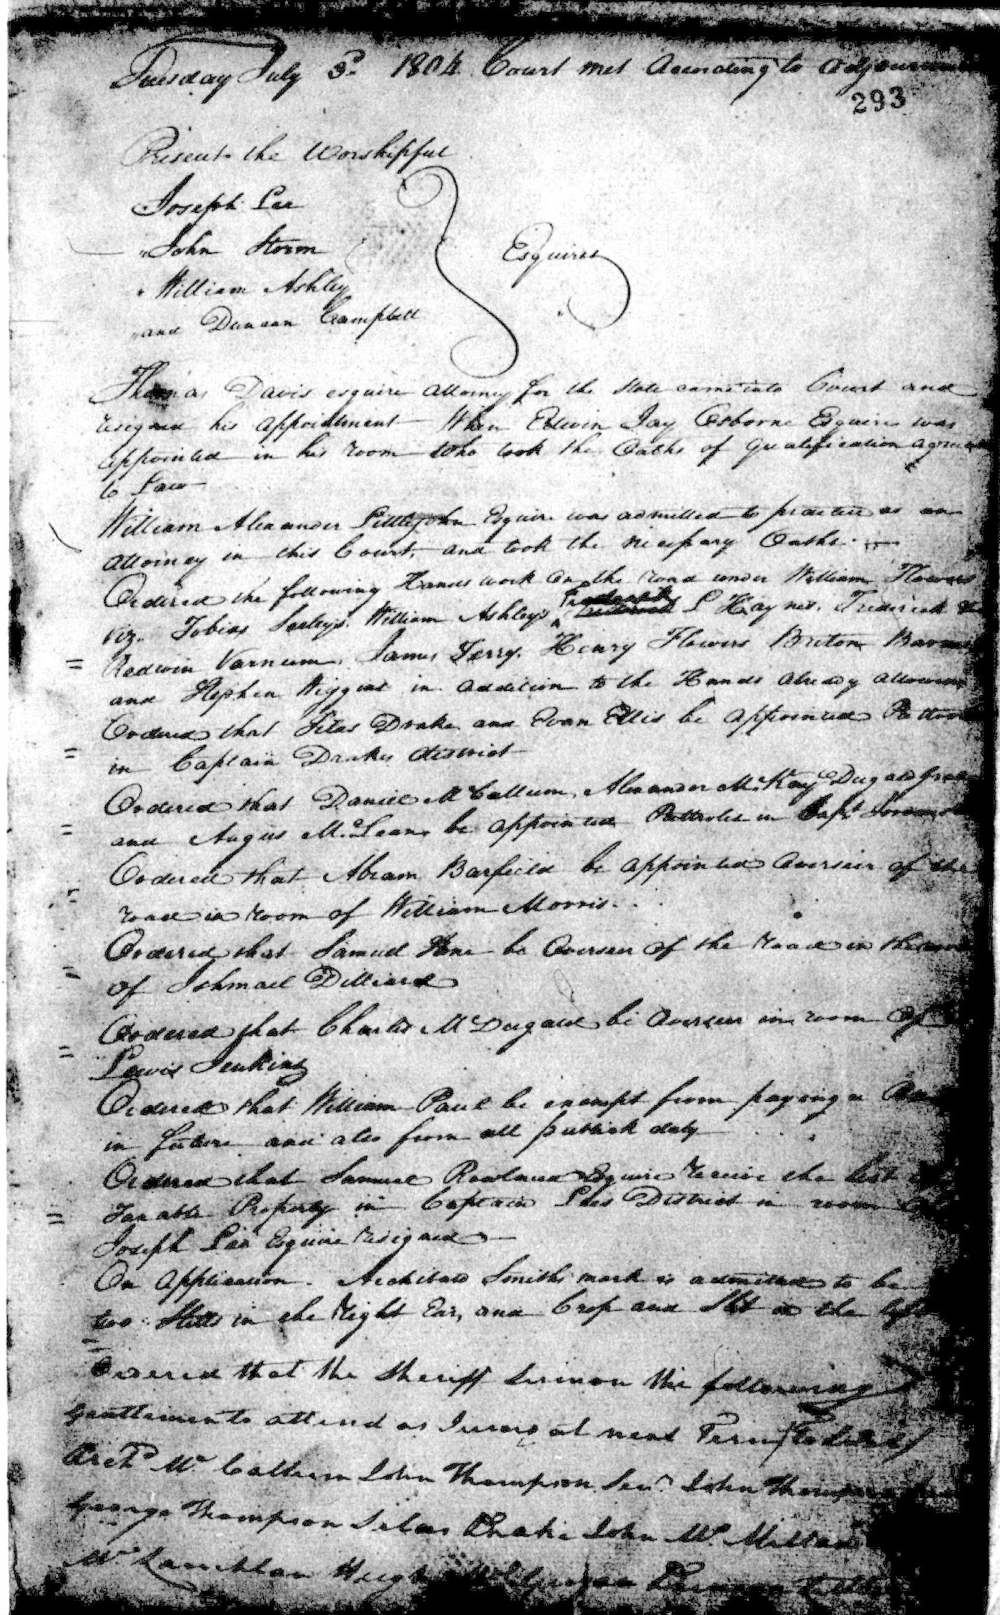 Tuesday July 3d. 1804 Court met According to
293
Present the Worshipful
Joseph Lee
John Storm
William Ashley
and Duncan Campbell
Esquires
Thomas Davis esquire attorney for the State came into Court and
resigned his appointment When Edwin Jay Osborne Esquire was
appointed in his room who took the Oaths of Qualification
to Law
William Alexander Littlejohn Esquire was admitted to practice as an
attorney in this Court, and took the necessary Oaths.
Ordered the following Hands work on the road under William Flowers
viz. Tobias William Ashley's L Haynes. Frederick
Redwin Varnum, James Terry. Henry Flowers Briton
and Stephen Wiggins in addition to the Hands already
Ordered that Silas Drake and Evan Ellis be appointed
in Captain Drakes district
Ordered that Daniel McCallum, Alexander McKay Dugald
and Angus McLean be appointed Pattroles in Capt
Ordered that Abram Barfield be appointed overseer of the
road in room of William Morris.
Ordered that Samuel be Overseer of the road in the
of Ishmael Dilliard
Ordered that Charles McDugald be Overseer in room Of
Lewis Jenkins
Ordered that William Paul be exempt from paying a
in future and also from all publick duty
Ordered that Samuel Rowland Esquire receive the list
Taxable Property in Captain Lees District in room
Joseph Lee Esquire resigned
On application. Archibald Smiths mark is admitted to be
two Slitts in the right Ear, and Crop and Slit in the left
Ordered that the Sheriff Summon the following
Gentlemen to attend as Jurors at next Term
Archd Mc Callum John Thompson Senr John
George Thompson Silas Drake John Mc Millan
Mc Lauchlan Hugh